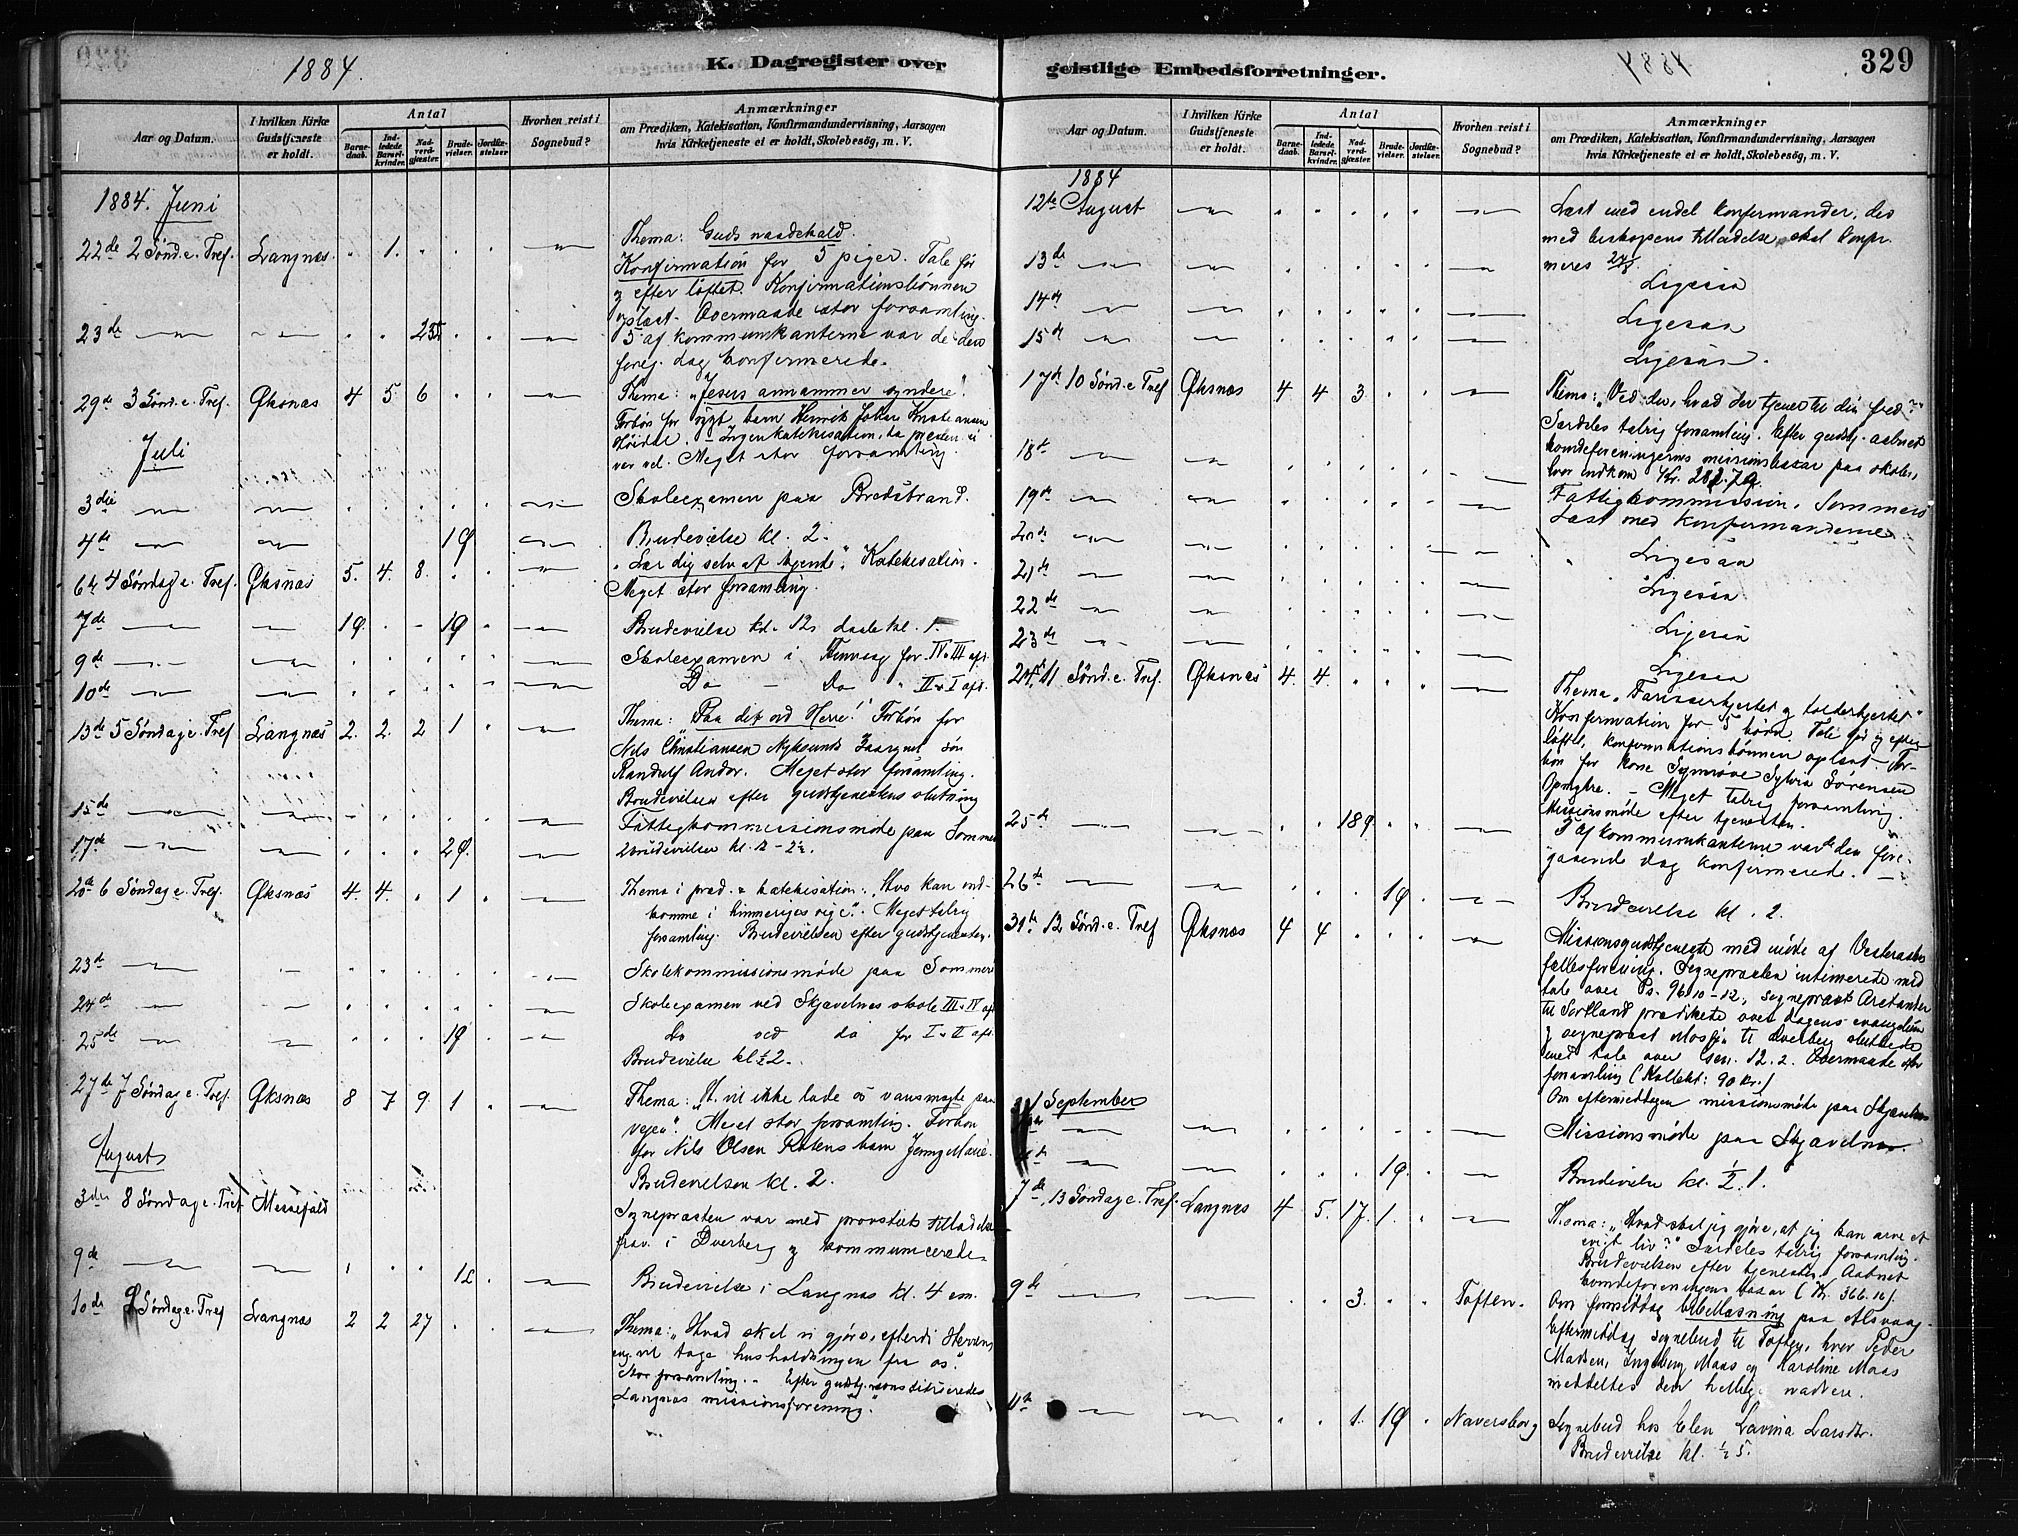 1884.
K. Dagregister over
Aar og Datum.
I hvilken Kirke Gudstjeneste er holdt.
Antal
Barnedaab.
Indledede Barselkvinder.
Nadverdgjæster.
Brudevielser.
Jordfæstelser.
Hvorhen reist i Sognebud?
Anmærkninger
om Prædiken, Katekisation, Konfirmandundervisning, Aarsagen
hvis Kirketjeneste ei er holdt, Skolebesög, m. V.
1884. Juni
22de 2 Sønd. e. Tref. Langnæs. " 1. " " " — Thema: Guds naadekald.
Konfirmation for 5 piger. Tale før
og efter løftet. Konfirmationsbønnen
oplæst. Overmaade stor forsamling.
23de — — " " " " — 5 af kommunikanterne var de den
foreg. dag konfirmerede.
29de 3 Sønd. e. Tref. Øksnæs 4 5 6 " " — Thema: "Jesus annammer syndere".
Forbøn for sygt barn Henrik
Ingen katekisation, da presten ei
var vel. Meget stor forsamling.
Juli
3die — — " " " " " — Skoleexamen paa Bredstrand.
4de — — 1Ø — Brudevielse kl. 2.
6te 4 Søndag e. Tref. Øksnæs 5. 4. 8. " " — "Lær dig selv at kjende". Katekisation.
Meget stor forsamling.
7de — — 1Ø. " - 1Ø " — Brudevielse kl. 12, daab kl. 1.
9de — — " " " " " — Skoleexamen i for IV & III afd.
10de — — " " " " " — Do — Do " II & I afd.
13de 5 Søndag e. Tref. Langnæs 2. 2. 2 1 " — Thema: "Paa det ord Herre!" Forbøn for
Nils Christiansen Nyksund søn
Randulf Andor. Meget stor forsamling.
Brudevielse efter gudstjenestens slutning
15de — — " " " " " — Fattigkommissionsmøde paa Sommerø
17de — — " " " 2Ø. — 2 brudevielser kl. 12 - 2½.
20de 6 Søndag e. Tref. Øksnæs 4. 4. " 1 " — Thema i præd. & katekisation: "Hvo kan ind-
komme i himmeriges rige". Meget talrig
forsamling. Brudevielsen efter gudstjenesten.
23de — — " " " " " — Skolekommissionsmøde paa Sommerø
24de — — " " " " — Skoleexamen ved Skjævelnes skole III & IV afd
25de — — " " " 1Ø — Do ved do for I & II afd.
Brudevielse kl ½ 2.
27de 7 Søndag e. Tref. Øksnæs 8 7 9. 1 " — Thema: "H. vil ikke lade os vansmægte paa
vejen". Meget stor forsamling. Forbøn
for Nils Olsen barn Jenny Marie.
Brudevielsen kl. 2.
August
3die 8 Søndag e. Tref Messefald Sognepræsten var med provstiets tilladelse
frav. i Dverberg og kommunicerede.
9de — — " " " 1L " — Brudevielse i Langnæs kl. 4 em.
10de 9 Søndag e. Tref Langnæs 2 2 27 " " — Thema: "Hvad skal vi gjøre, efterdi Herren
vil tage husholdningen fra os".
Stor forsamling. - Efter gudstj. konstitueredes
"Langnæs missionsforening".
geistlige Embedsforretninger.
329
Aar og Datum.
I hvilken Kirke Gudstjeneste er holdt.
Antal
Barnedaab.
Indledede Barselkvinder.
Nadverdgjæster.
Brudevielser.
Jordfæstelser.
Hvorhen reist i Sognebud?
Anmærkninger
om Prædiken, Katekisation, Konfirmandundervisning, Aarsagen
hvis Kirketjeneste ei er holdt, Skolebesög, m. V.
1884
12te August — " " " " " — Læst med endel konfirmander, der
med biskopens tilladelse skal konfir-
meres 24/8.
13de — — " " " " " — Ligesaa
14de — — " " " " " — Ligesaa
15de — — " " " " " — Ligesaa.
17de 10 Sønd. e. Tref Øksnæs 4 4 3. " " — Thema: "Ved du, hvad der tjener til din fred?"
Særdeles talrig forsamling. Efter gudstj. aabnedes
kvindeforeningernes missionsbasar paa skolen,
hvor indkom Kr.
18de — — " " " " " —
19de — — " " " " " — Fattigkommission, Sommerø
Læst med konfirmanderne
20de — — " " " " — Ligesaa
21de — — " " " " " — Ligesaa
22de — — " " " " " — Ligesaa
23de — — " " " " " — Ligesaa
24de 11 Sønd. e. Tref. Øksnæs 4. 4. " " " — Thema "Farisæerhjertet og tolderhjertet"
Konfirmation for 5 børn. Tale før og efter
løftet, konfirmationsbønnen oplæst. For-
bøn for kone Synnøve Sylvia Sørensen
— Meget talrig forsamling.
Missionsmøde efter tjenesten.
25de — — " " 18Ø. " " — 3 af kommunikanterne var de den fore-
gaaende dag konfirmerede. —
26de — — " " " 1Ø " — Brudevielse kl. 2.
31te 12 Sønd. e. Tref Øksnæs 4 4 " " " — Missionsgudstjeneste med møde af Vesteraalens
fællesforening. Sognepræsten intimerede med
tale over Ps. 96.10-12, sognepræst Arctander
til Sortland prædikede over dagens evangelium
og sognepræst til Dverberg sluttede
med tale over Gen. 12.2. Overmaade stor
forsamling (Kollekt: 90 kr.)
Om eftermiddagen missionsmøde paa Skjævelnes
September
— — " " " " " — Missionsmøde paa Skjævelnes.
— — " " " 1Ø. " — Brudevielse kl. ½ 1.
7de 13 Søndag e. Tref. Langnæs 4 5. 17. 1. " — Thema: "Hvad skal jeg gjøre, at jeg kan arve et
evigt liv?" Særdeles talrig forsamling.
Brudevielsen efter tjenesten. Aabnet
kvindeforeningens basar (Kr. 366.16).
9de — — " " 3. " " Toften. Om formiddag bibellæsning paa Alsvaag
Eftermiddag sognebud til Toften, hvor Peder
Madsen, Ingeborg Maas og Karoline Maas
meddeltes den hellige nadvere.
11te — — " " 1. 1Ø " Naversborg Sognebud hos Elen Lavina Larsdtr.
Brudevielse kl. ½ 5.